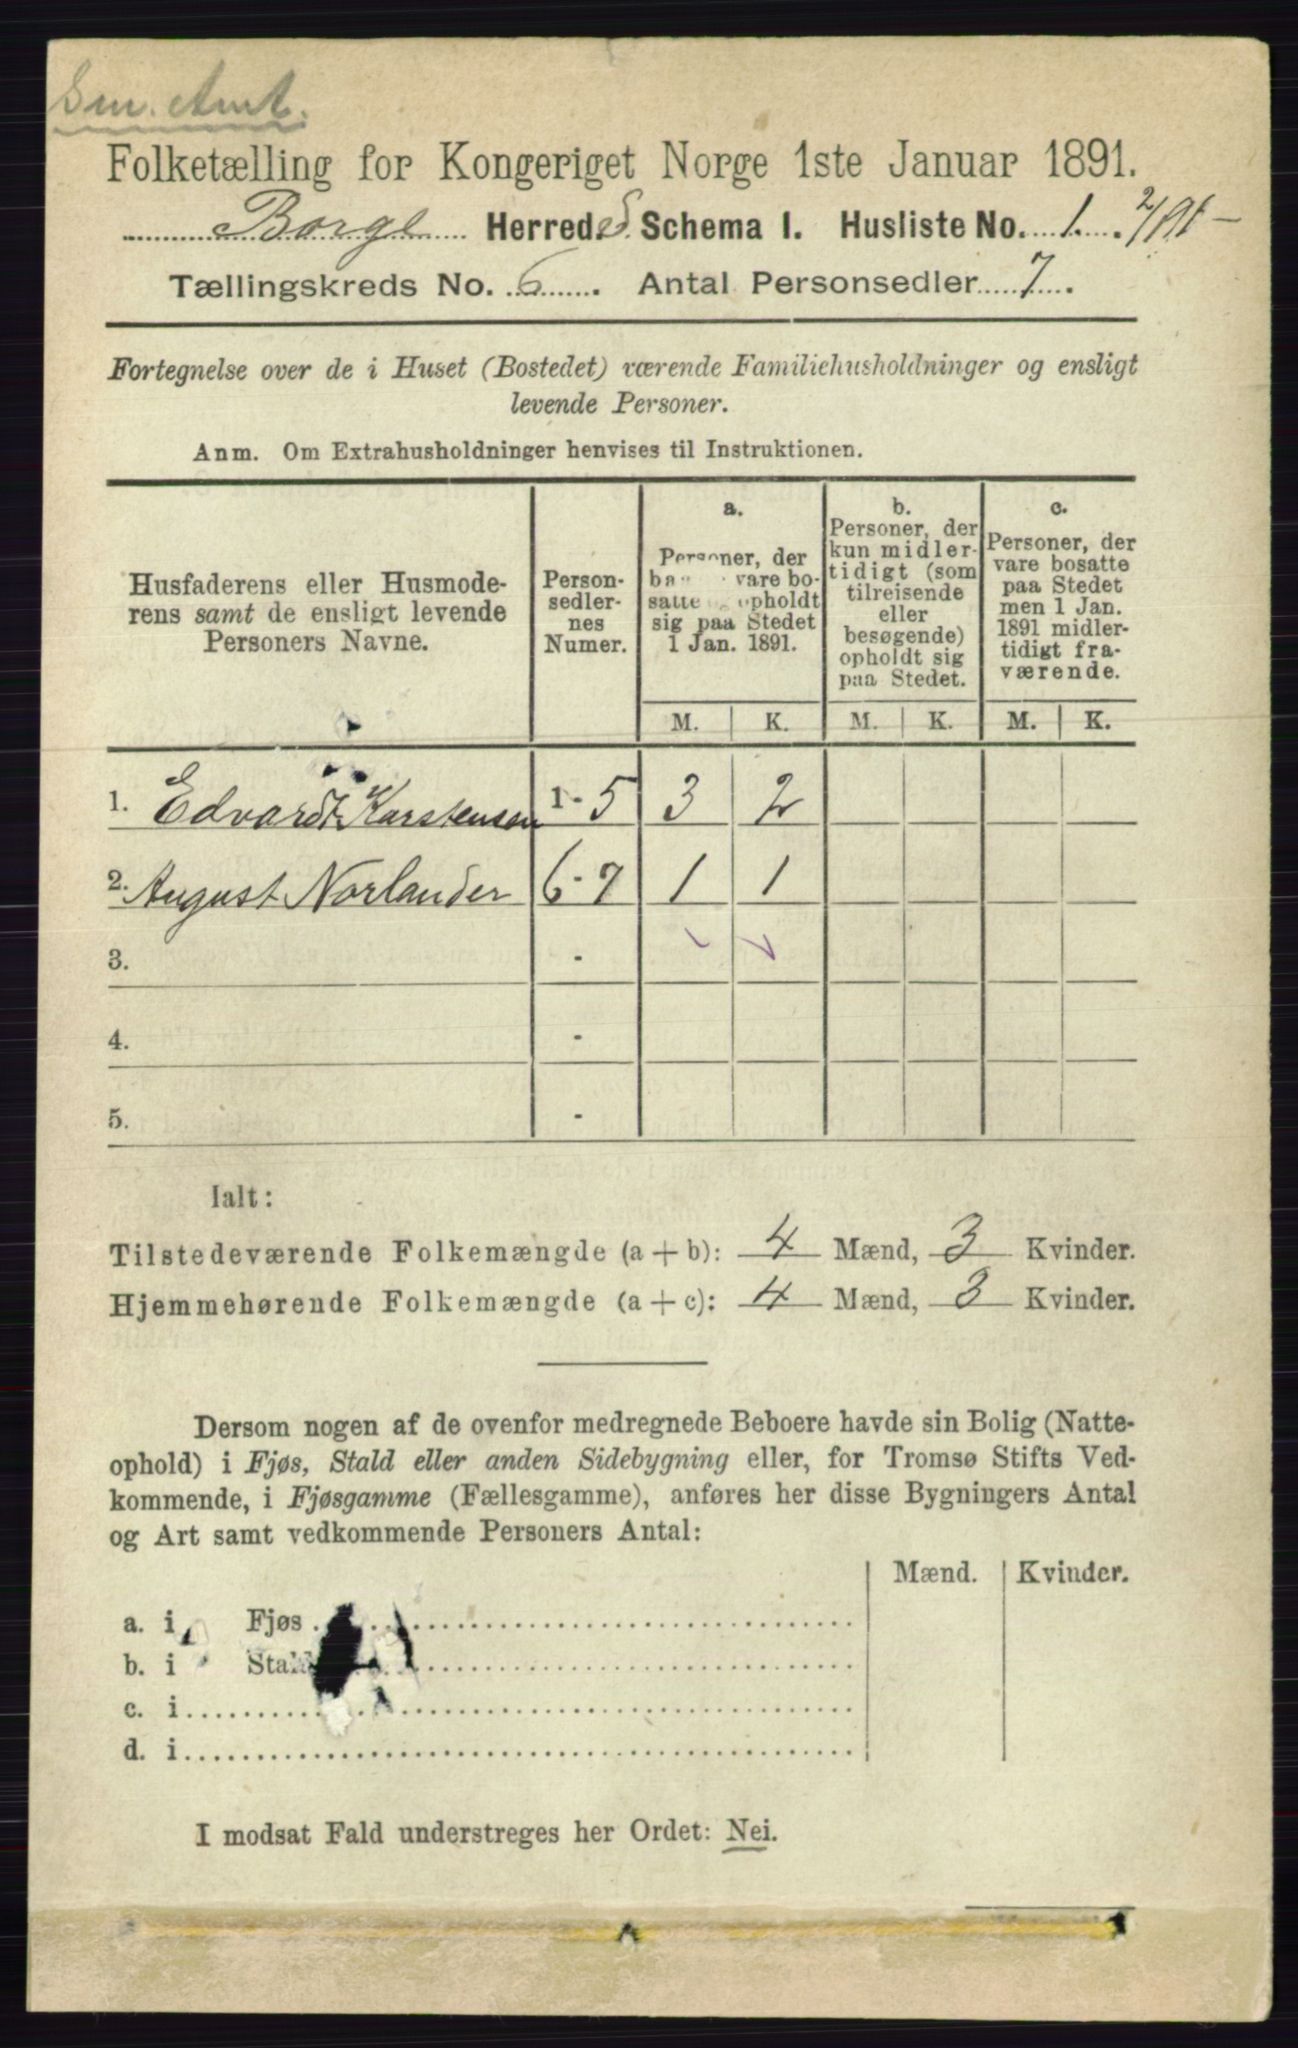 Sm. Amt.
Folketælling for Kongeriget Norge 1ste Januar 1891.
Borge Herred. Schema I. Husliste No. 1.
Tællingskreds No. 6. Antal Personsedler 7.
Fortegnelse over de i Huset (Bostedet) værende Familiehusholdninger og ensligt
levende Personer.
Anm. Om Extrahusholdninger henvises til Instruktionen.
Husfaderens eller Husmode-
rens samt de ensligt levende
Personers Navne.
Person-
sedler-
nes
Numer.
a.
Personer, der
vare bo-
satte opholdt
sig paa Stedet
1 Jan. 1891.
b.
Personer, der
kun midler-
tidigt (som
tilreisende
eller
besøgende)
opholdt sig
paa Stedet.
c.
Personer, der
vare bosatte
paa Stedet
men 1 Jan.
1891 midler-
tidigt fra-
værende.
M. K. M. K. M. K.
1. Edvardt Karstensen 1-5 3 2
2. August Norlander 6-7 1 1
3. -
4. -
5. -
Ialt:
Tilstedeværende Folkemængde (a + b): 4 Mænd, 3 Kvinder.
Hjemmehørende Folkemængde (a + c): 4 Mænd, 3 Kvinder.
Dersom nogen af de ovenfor medregnede Beboere havde sin Bolig (Natte-
ophold) i Fjøs, Stald eller anden Sidebygning eller, for Tromsø Stifts Ved-
kommende, i Fjøsgamme (Fællesgamme), anføres her disse Bygningers Antal
og Art samt vedkommende Personers Antal:
Mænd. Kvinder.
a. i Fjøs
b. i Stald
c. i
d. i
I modsat Fald understreges her Ordet: Nei.